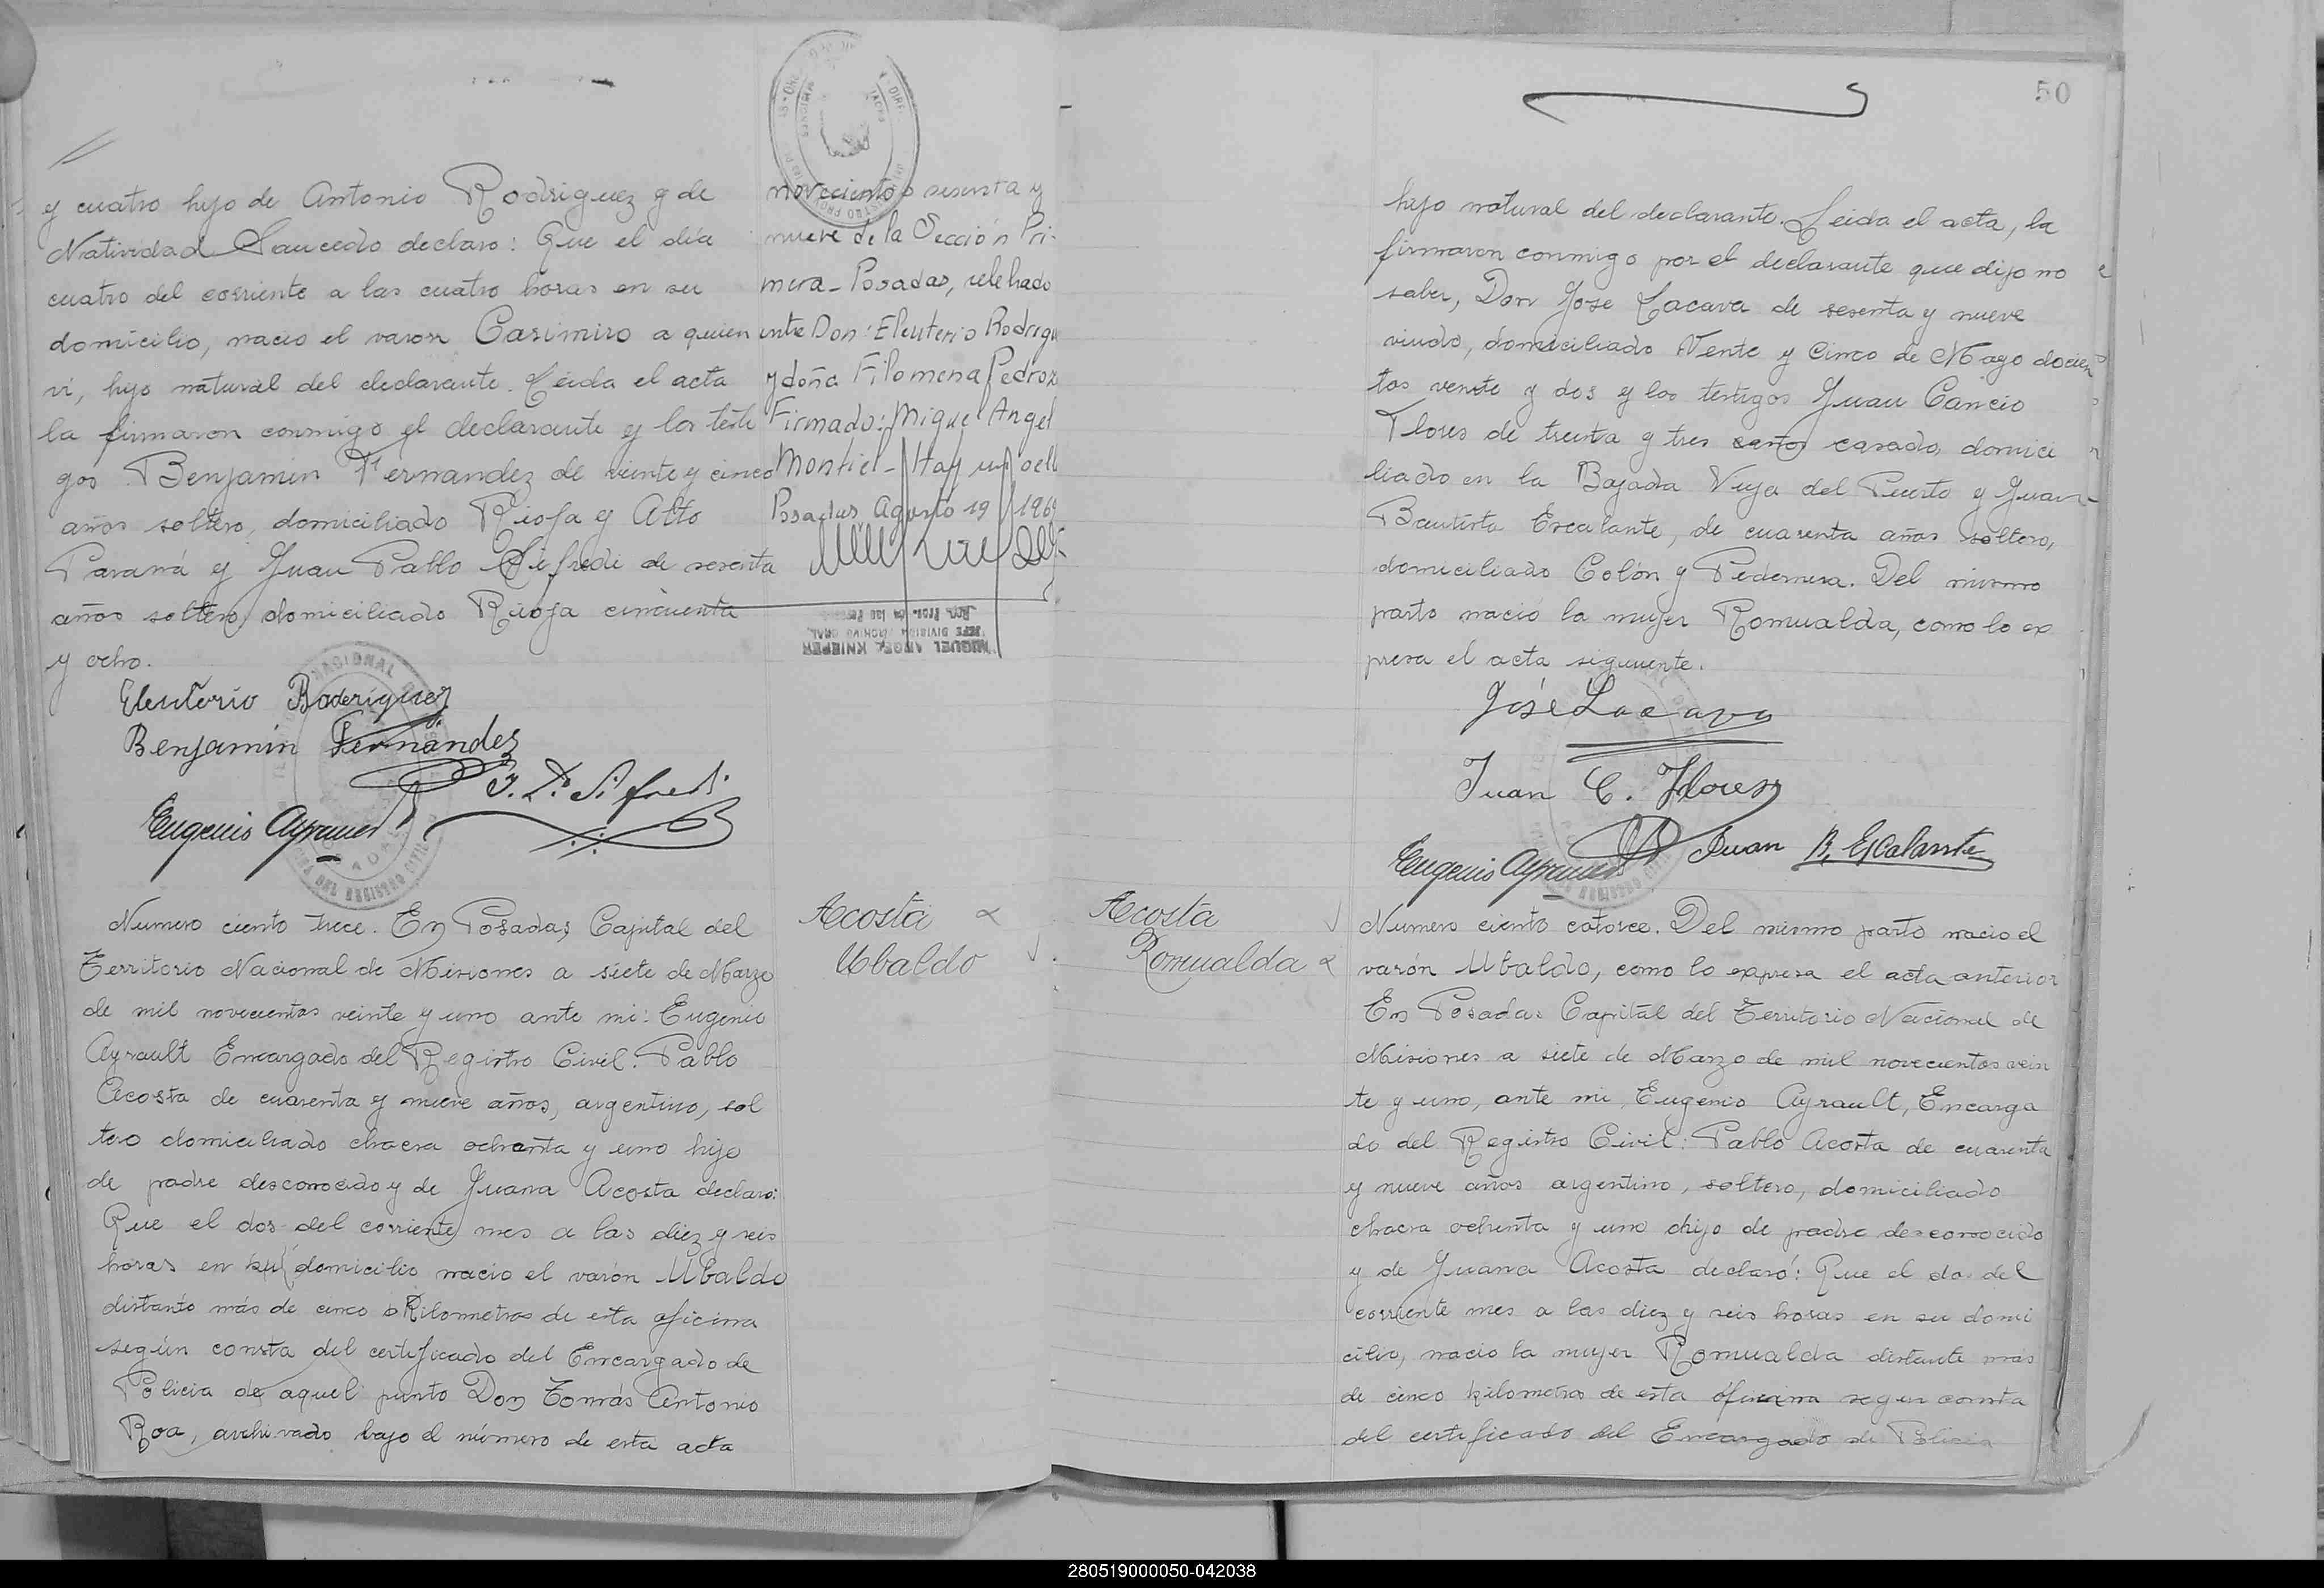 y cuatro hijo de Antonio Rodriguez y de
Natividad Saucedo declaro: Que el día
cuatro del corriente a las cuatro horas en su
domicilio, nacio el varon Casimiro a quien
vi, hijo natural del declarante. Leida el acta
la firmaron conmigo el declarante y los testi
gos Benjamin Fernandez de veinte y cinco
años soltero, domiciliado Rioja y Alto
Paraná y Juan Pablo Sifredi de sesenta
años soltero domiciliado Rioja cincuenta
y ocho.
Eleuterio Roderiguez
Benjamin Fernandez
J. P. Sifredi
Eugenio Ayrault
novecientos sesenta y
nueve de la Sección Pri-
mera - Posadas, celebrado
entre Don: Eleuterio Rodrigu
y doña Filomena Pedroz
Firmado: Miguel Angel
Montiel - Hay un sell
Posadas Agosto 19 1969
MIGUEL ANGEL KNIEPER
JEFE DIVISION ARCHIVO GRAL.
Numero ciento trece. En Posadas, Capital del
Territorio Nacional de Misiones a siete de Marzo
de mil novecientos veinte y uno ante mi: Eugenio
Ayrault Encargado del Registro Civil: Pablo
Acosta de cuarenta y nueve años, argentino, sol
tero domiciliado chacra ochenta y uno hijo
de padre desconocido y de Juana Acosta declaro:
Que el dos del corriente mes a las diez y seis
horas en su domicilio nacio el varón Ubaldo
distante más de cinco kilometros de esta oficina
según consta del certificado del Encargado de
Policia de aquel punto Don Tomás Antonio
Roa, archivado bajo el número de esta acta
Acosta
Ubaldo
50
hijo natural del declarante. Leida el acta, la
firmaron conmigo por el declarante que dijo no
saber, Don Jose Lacava de sesenta y nueve
viudo, domiciliado Veinte y Cinco de Mayo docien
tos veinte y dos y los testigos Juan Cancio
Flores de treinta y tres años casado, domici
liado en la Bajada Vieja del Puerto y Juan
Bautista Escalante, de cuarenta años soltero,
domiciliado Colón y Pedernera. Del mismo
parto nació la mujer Romualda, como lo ex
presa el acta siguiente.
José Lacava
Juan C. Flores
Juan B. Escalante
Eugenio Ayrault
Acosta
Romualda
Numero ciento catorce. Del mismo parto nacio el
varón Ubaldo, como lo expresa el acta anterior
En Posadas Capital del Territorio Nacional de
Misiones a siete de Marzo de mil novecientos vein
te y uno, ante mi, Eugenio Ayrault, Encarga
do del Registro Civil: Pablo Acosta de cuarenta
y nueve años argentino, soltero, domiciliado
chacra ochenta y uno hijo de padre desconocido
y de Juana Acosta declaró: Que el dos del
corriente mes a las diez y seis horas en su domi
cilio, nacio la mujer Romualda distante más
de cinco kilometros de esta oficina segun consta
del certificado del Encargado de Policia
280519000050-042038